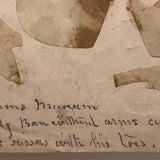 Museum
Bon without arms cu
scissors with his toes.